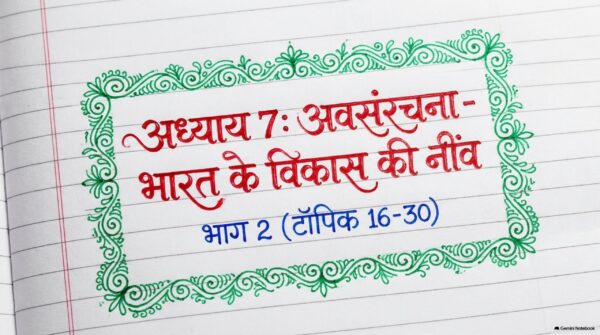 अध्याय 7: अवसंरचना -
भारत के विकास की नींव
भाग 2 (टॉपिक 16-30)
Gemini Notebook